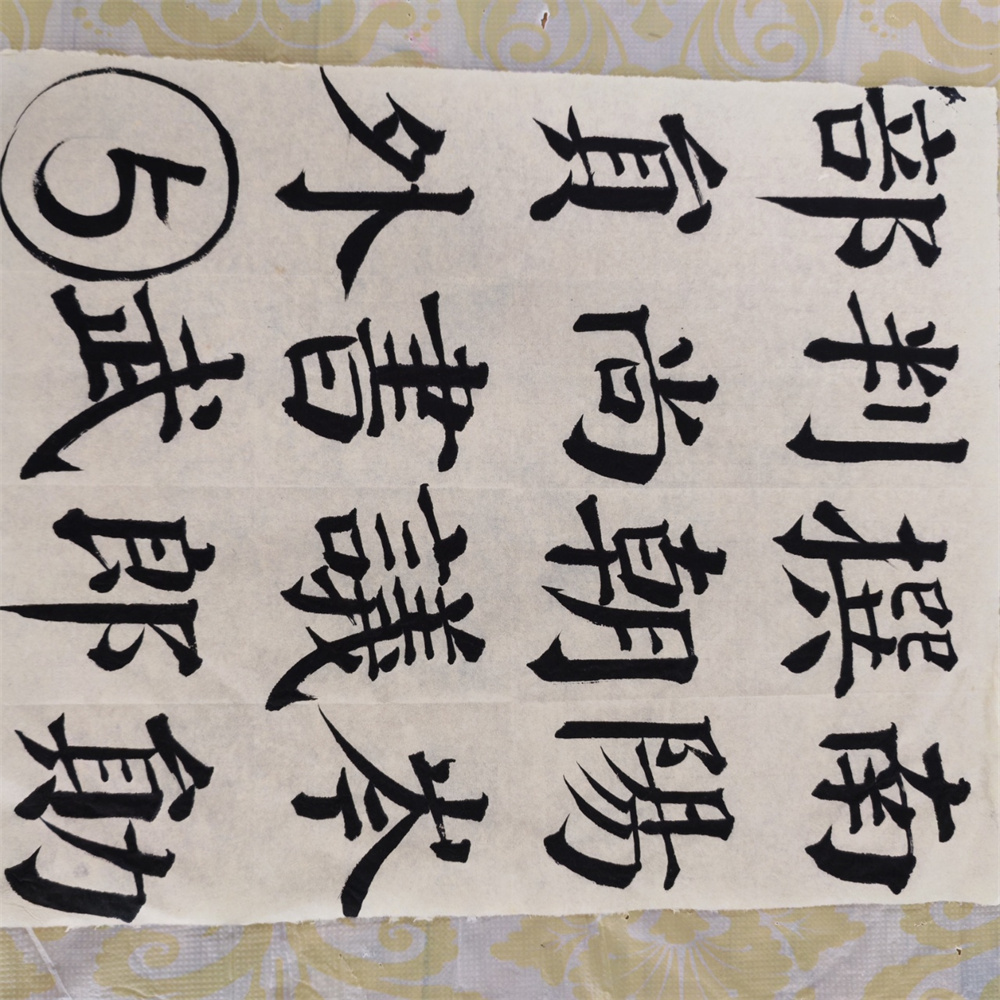 南陽岑勛
撰朝議郎
判尚書武
部員外⑤